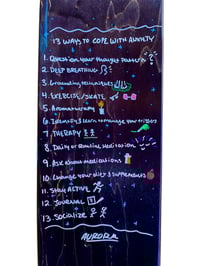 13 WAYS TO COPE WITH ANXIETY
1. Question your thought pattern
2. DEEP BREATHING
3. Grounding techniques
4. EXERCISE/SKATE
5. Aromatherapy
6. Identify & learn to manage your triggers
7. THERAPY
8. Daily or Routine Meditation
9. Ask about medications
10. Change your diet & supplements
11. STAY ACTIVE
12. JOURNAL
13. Socialize
AURORA